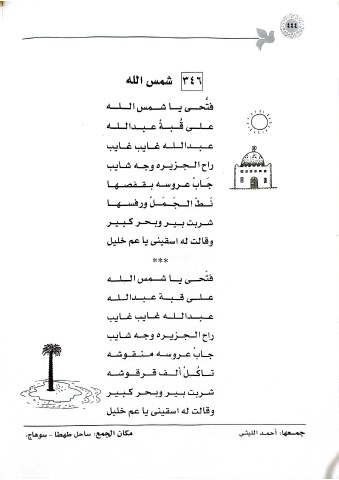 ٤٤٤
٣٤٦ شمس الله
فتَّحى يا شمس الله
على قُبة عبدالله
عبدالله غايب غايب
راح الجزيره وجه شايب
جَابْ عروسه بقفصها
نَطْ الجَمَلْ ورفسها
شربت بير وبحر كبير
وقالت له اسقينى يا عم خليل
***
فتَحى يا شمس الله
على قبة عبدالله
عبدالله غايب غايب
راح الجزيره وجه شايب
جابْ عروسه منقوشه
تاكُلْ ألف قرقوشه
شربت بير وبحر كبير
وقالت له اسقينى يا عم خليل
جمعها: أحمد الليثى
مكان الجمع: ساحل طهطا - سوهاج.